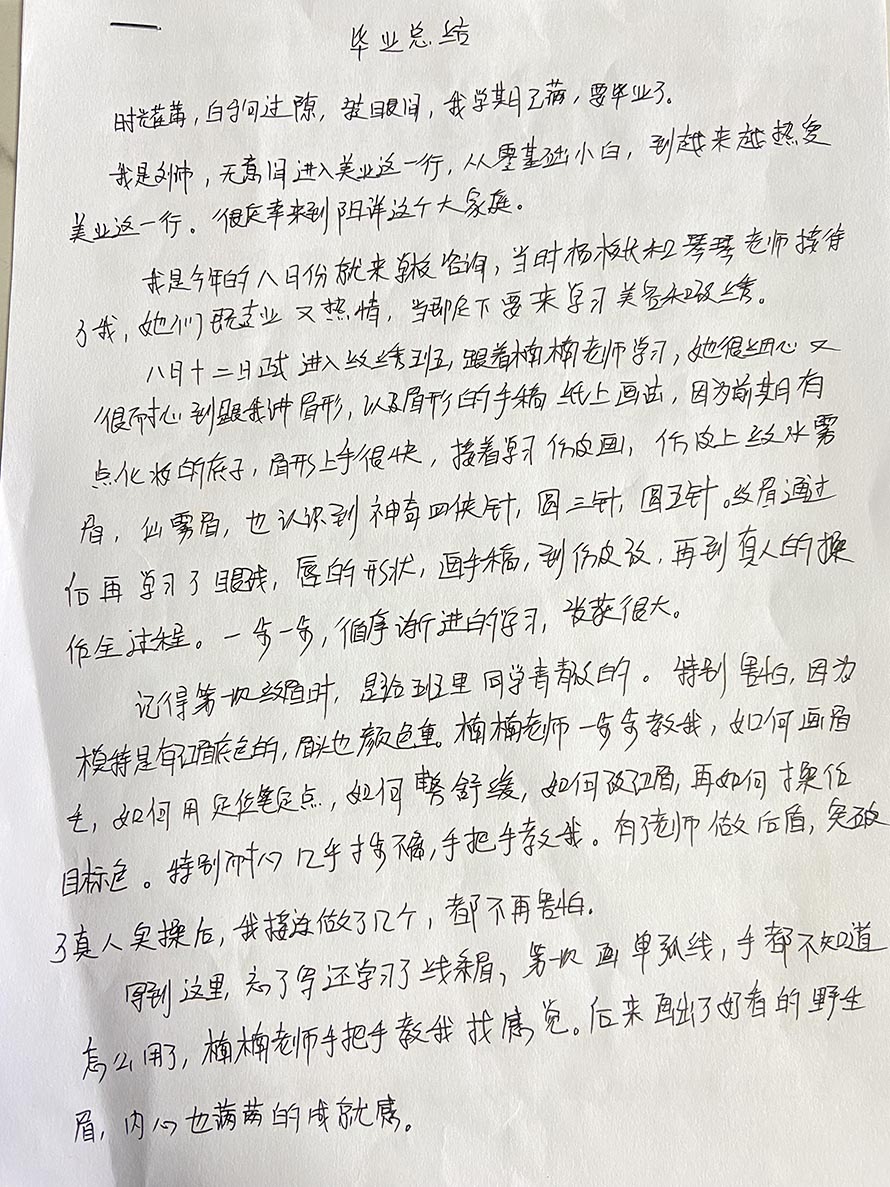 毕业总结
时光荏苒，白驹过隙，转眼间，我学期已满，要毕业了。
我是刘帅，无意间进入美业这一行，从零基础小白，到越来越热爱
美业这一行。很庆幸来到阳洋这个大家庭。
我是今年的八月份就来学校咨询，当时杨校长和琴琴老师接待
了我，她们既专业又热情，当即定下要来学习美容和纹绣。
八月十二日正式进入纹绣班，跟着楠楠老师学习，她很细心又
很耐心到跟我讲眉形，以及眉形的手稿纸上画法，因为前期有
点化妆的底子，眉形上手很快，接着学习仿皮画，仿皮上纹水雾
眉，仙雾眉，也认识到神奇四侠针，圆三针，圆五针。纹眉通过
后再学习了眼线，唇的形状，画手稿，到仿皮纹，再到真人的操
作全过程。一步一步，循序渐进的学习，收获很大。
记得第一次纹眉时，是给班里同学青青纹的。特别害怕，因为
模特是有红眉底色的，眉头也颜色重。楠楠老师一步步教我，如何画眉
毛，如何用定位笔定点，如何敷舒缓，如何改红眉，再如何操作
目标色。特别耐心几乎寸步不离，手把手教我。有了老师做后盾，突破
了真人实操后，我接连做了几个，都不再害怕.
写到这里，忘了写还学习了线条眉，第一次画单弧线，手都不知道
怎么用了，楠楠老师手把手教我找感觉。后来画出了好看的野生
眉，内心也满满的成就感。